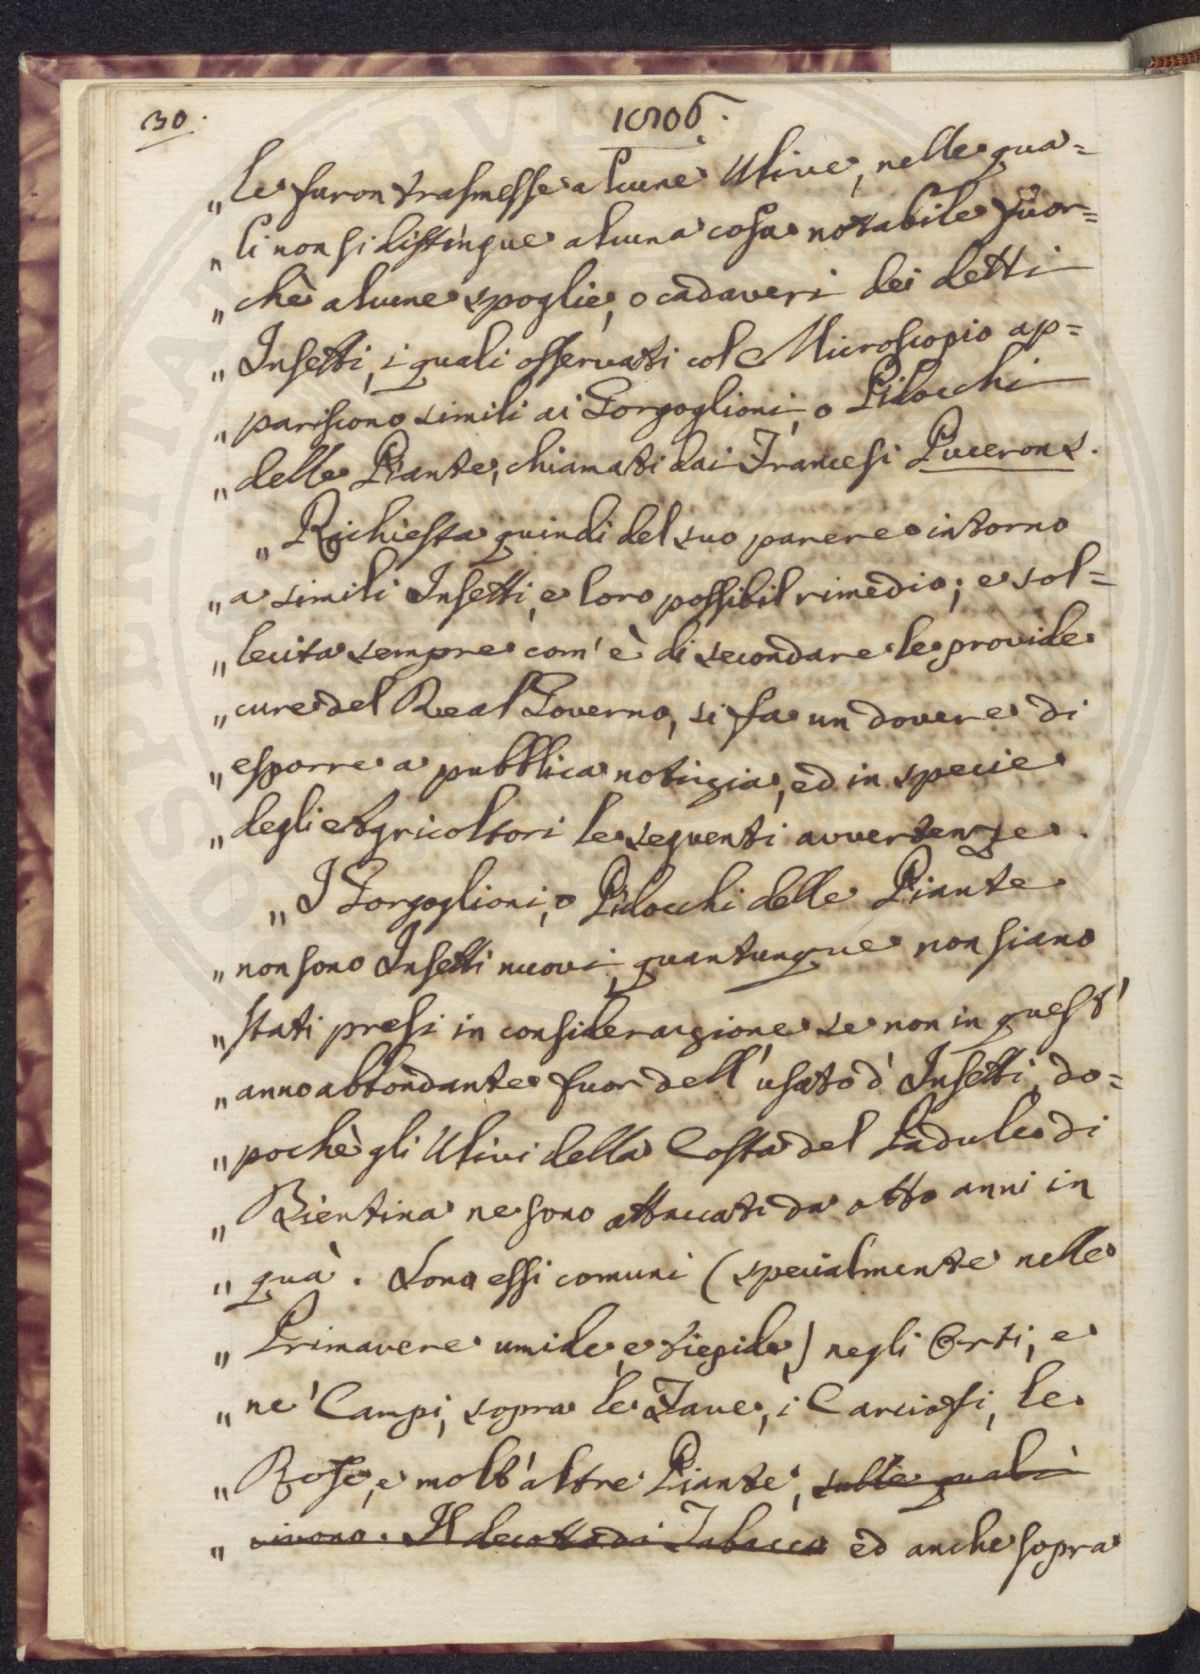 30.
1806.
„ le furon trasmesse alcune Ulive, nelle qua=
„ li non si distingue alcuna cosa notabile fuor=
„ chè alcune spoglie, o cadaveri dei detti
„ Insetti, i quali osservati col Microscopio ap=
„ pariscono simili ai Gorgoglioni, o Pidocchi
„ delle Piante, chiamati dai Francesi Pucerons.
„ Richiesta quindi del suo parere intorno
„ a simili Insetti, e loro possibil rimedio; e sol=
„ lecita sempre com' è di secondare le provide
„ cure del Real Governo, si fa un dovere di
„ esporre a pubblica notizia, ed in specie
„ degli Agricoltori le seguenti avvertenze.
„ I Gorgoglioni, o Pidocchi delle Piante
„ non sono Insetti nuovi, quantunque non siano
„ stati presi in considerazione se non in quest'
„ anno abbondante fuor dell' usato d' Insetti, do=
„ pochè gli Ulivi della Costa del Padule di
„ Bientina ne sono attaccati da otto anni in
„ quà. Sono essi comuni (specialmente nelle
„ Primavere umide, e tiepide) negli Orti, e
„ ne' Campi, sopra le Fave, i Carciofi, le
„ Rose, e molt' altre Piante, sulle quali
„ vivono. Il decotto di Tabacco ed anche sopra